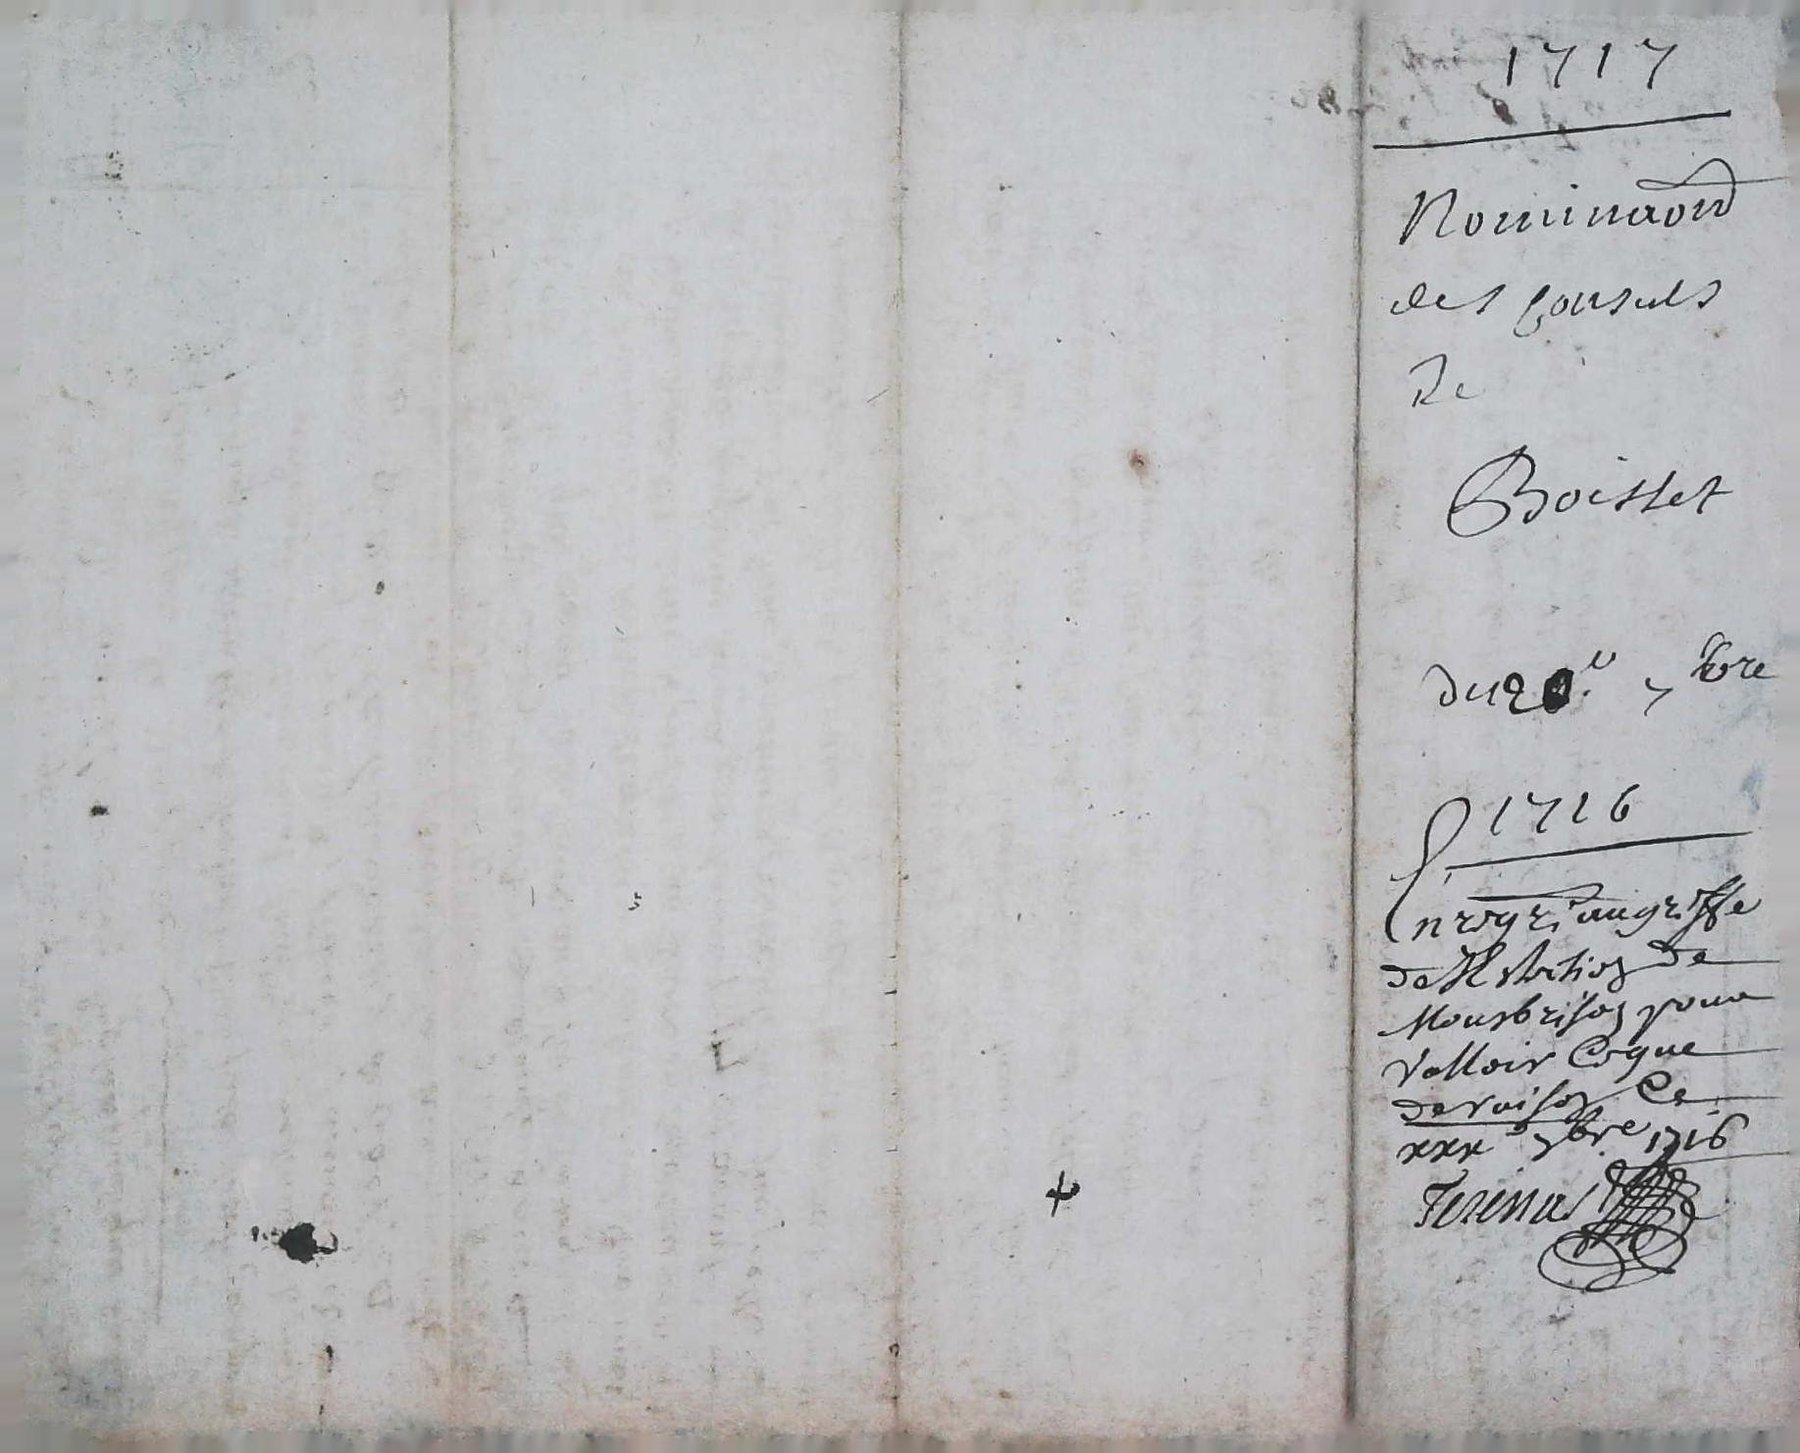 1717
Nominaõnd
des Consuls
de
Boisset
du 20.e 7bre
1716
Enregr. au greffe
de l'Ellection de
Montbrison pour
valloir Ce que
de raison Ce
xxx 7bre 1716